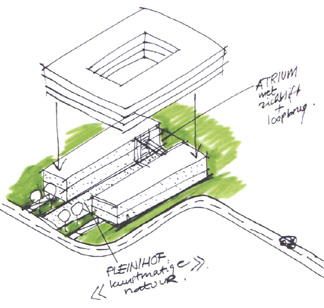 ATRIUM
met
zichtlift
+
loopbrug.
PLEINHOF:
kunstmatige
natuur.